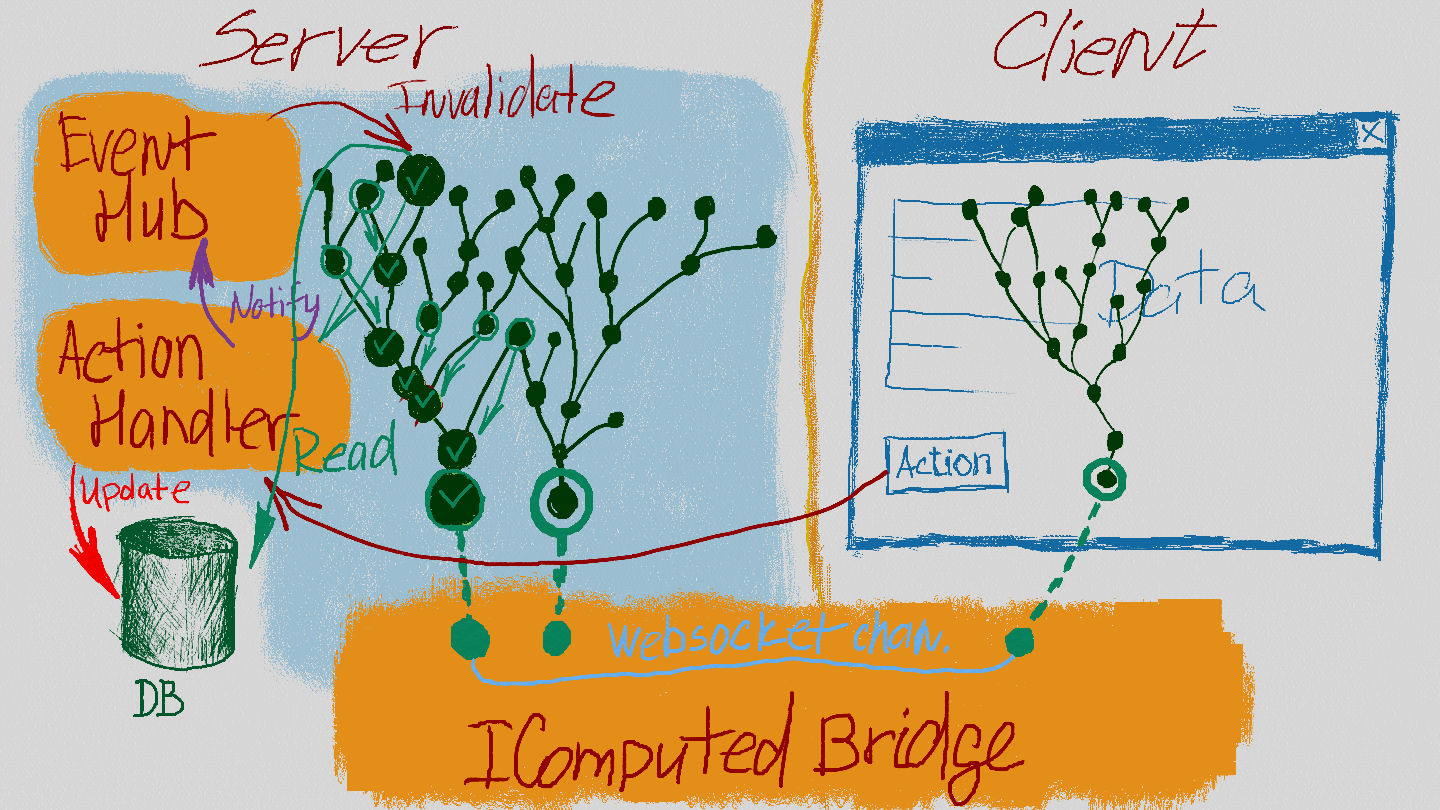 Server
Client
Invalidate
Event
Hub
Notify
Action
Handler
Read
Update
DB
Data
Action
Websocket chan.
IComputed Bridge